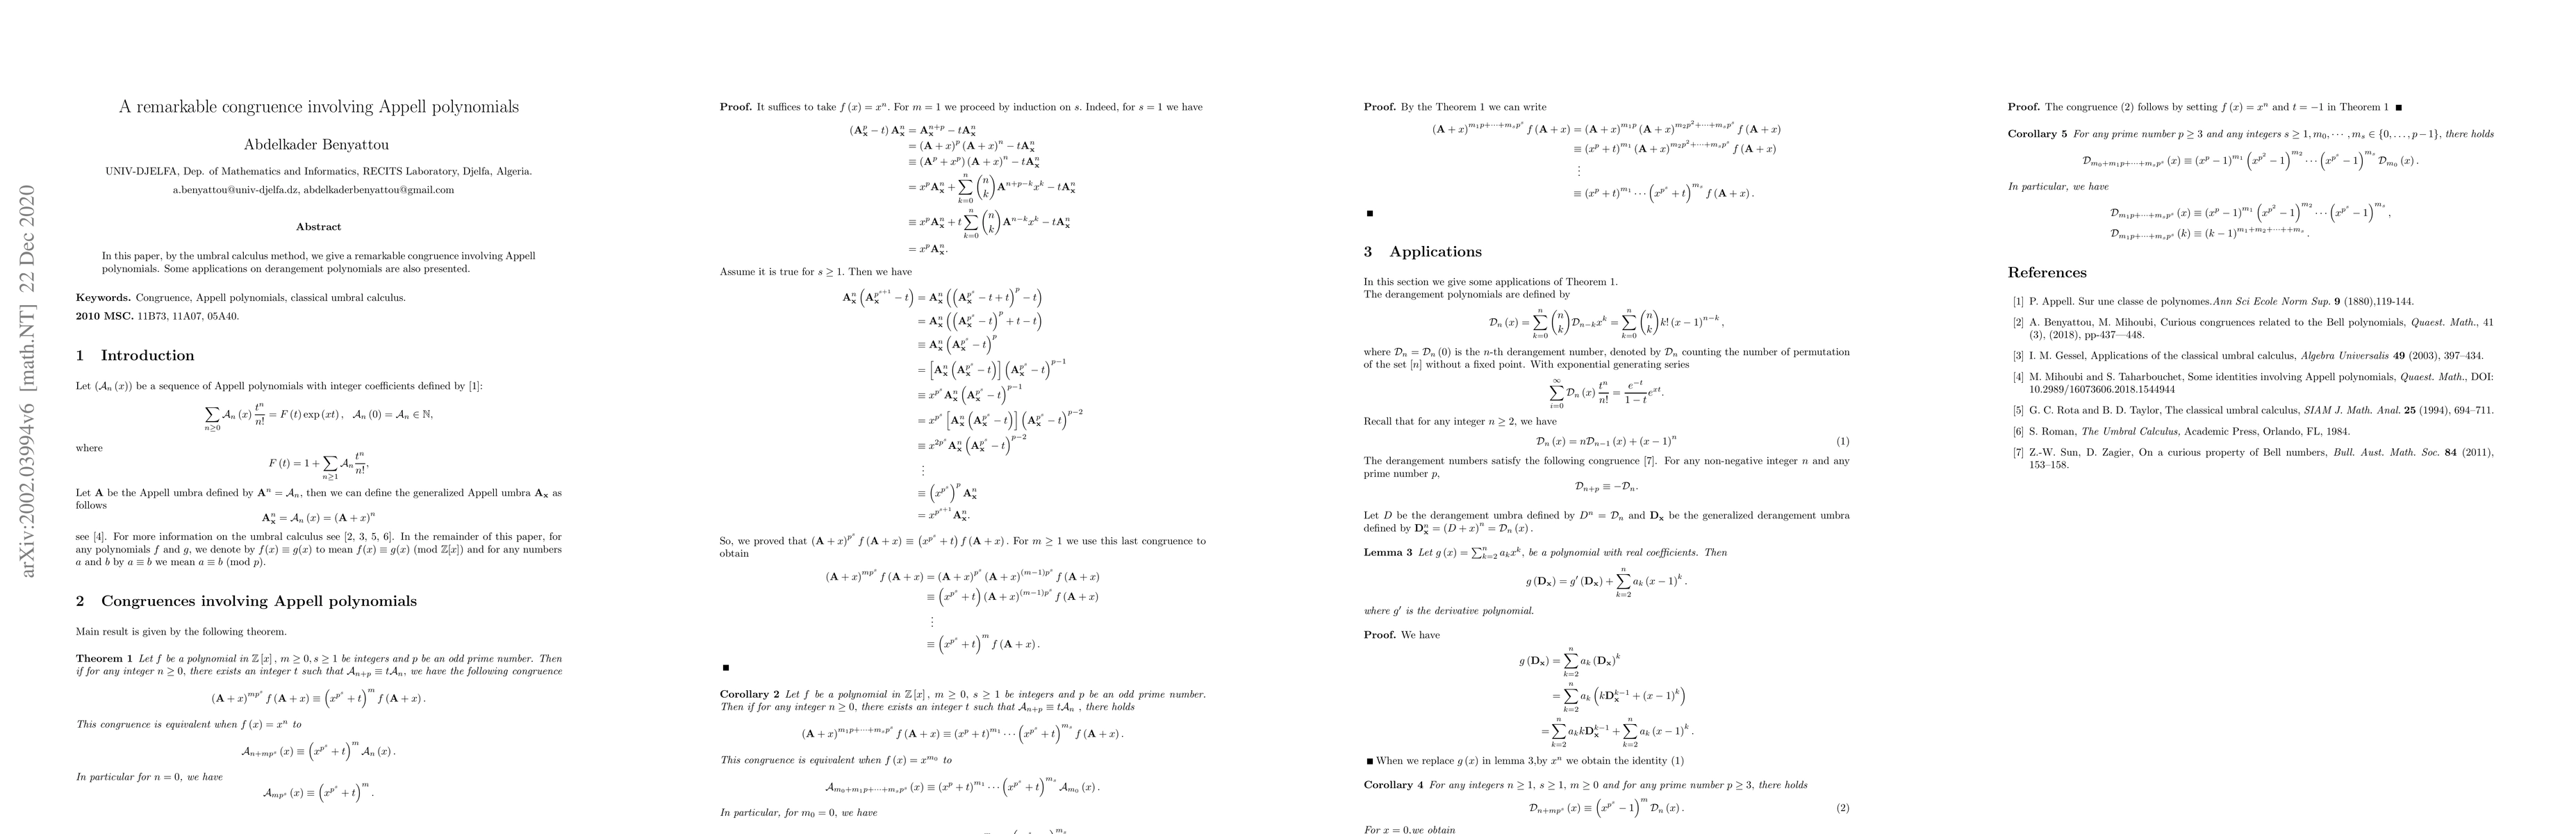 arXiv:2002.03994v6 [math.NT] 22 Dec 2020
A remarkable congruence involving Appell polynomials
Abdelkader Benyattou
UNIV-DJELFA, Dep. of Mathematics and Informatics, RECITS Laboratory, Djelfa, Algeria.
a.benyattou@univ-djelfa.dz, abdelkaderbenyattou@gmail.com
Abstract
In this paper, by the umbral calculus method, we give a remarkable congruence involving Appell
polynomials. Some applications on derangement polynomials are also presented.
Keywords. Congruence, Appell polynomials, classical umbral calculus.
2010 MSC. 11B73, 11A07, 05A40.
1 Introduction
Let (𝒜_n (x)) be a sequence of Appell polynomials with integer coefficients defined by [1]:
∑_{n≥0} 𝒜_n (x) t^n/n! = F (t) exp (xt), 𝒜_n (0) = 𝒜_n ∈ ℕ,
where
F (t) = 1 + ∑_{n≥1} 𝒜_n t^n/n!,
Let A be the Appell umbra defined by A^n = 𝒜_n, then we can define the generalized Appell umbra A_x as
follows
A_x^n = 𝒜_n (x) = (A + x)^n
see [4]. For more information on the umbral calculus see [2, 3, 5, 6]. In the remainder of this paper, for
any polynomials f and g, we denote by f(x) ≡ g(x) to mean f(x) ≡ g(x) (mod ℤ[x]) and for any numbers
a and b by a ≡ b we mean a ≡ b (mod p).
2 Congruences involving Appell polynomials
Main result is given by the following theorem.
Theorem 1 Let f be a polynomial in ℤ [x], m ≥ 0, s ≥ 1 be integers and p be an odd prime number. Then
if for any integer n ≥ 0, there exists an integer t such that 𝒜_{n+p} ≡ t𝒜_n, we have the following congruence
(A + x)^{mp^s} f (A + x) ≡ (x^{p^s} + t)^m f (A + x).
This congruence is equivalent when f (x) = x^n to
𝒜_{n+mp^s} (x) ≡ (x^{p^s} + t)^m 𝒜_n (x).
In particular for n = 0, we have
𝒜_{mp^s} (x) ≡ (x^{p^s} + t)^m.
Proof. It suffices to take f (x) = x^n. For m = 1 we proceed by induction on s. Indeed, for s = 1 we have
(A_x^p − t) A_x^n = A_x^{n+p} − tA_x^n
= (A + x)^p (A + x)^n − tA_x^n
≡ (A^p + x^p) (A + x)^n − tA_x^n
= x^p A_x^n + ∑_{k=0}^n (n k) A^{n+p−k} x^k − tA_x^n
≡ x^p A_x^n + t ∑_{k=0}^n (n k) A^{n−k} x^k − tA_x^n
= x^p A_x^n.
Assume it is true for s ≥ 1. Then we have
A_x^n (A_x^{p^{s+1}} − t) = A_x^n ((A_x^{p^s} − t + t)^p − t)
= A_x^n ((A_x^{p^s} − t)^p + t − t)
≡ A_x^n (A_x^{p^s} − t)^p
= [A_x^n (A_x^{p^s} − t)] (A_x^{p^s} − t)^{p−1}
≡ x^{p^s} A_x^n (A_x^{p^s} − t)^{p−1}
= x^{p^s} [A_x^n (A_x^{p^s} − t)] (A_x^{p^s} − t)^{p−2}
≡ x^{2p^s} A_x^n (A_x^{p^s} − t)^{p−2}
⋮
≡ (x^{p^s})^p A_x^n
= x^{p^{s+1}} A_x^n.
So, we proved that (A + x)^{p^s} f (A + x) ≡ (x^{p^s} + t) f (A + x). For m ≥ 1 we use this last congruence to
obtain
(A + x)^{mp^s} f (A + x) = (A + x)^{p^s} (A + x)^{(m−1)p^s} f (A + x)
≡ (x^{p^s} + t) (A + x)^{(m−1)p^s} f (A + x)
⋮
≡ (x^{p^s} + t)^m f (A + x).
■
Corollary 2 Let f be a polynomial in ℤ [x], m ≥ 0, s ≥ 1 be integers and p be an odd prime number.
Then if for any integer n ≥ 0, there exists an integer t such that 𝒜_{n+p} ≡ t𝒜_n , there holds
(A + x)^{m_1p+···+m_sp^s} f (A + x) ≡ (x^p + t)^{m_1} ··· (x^{p^s} + t)^{m_s} f (A + x).
This congruence is equivalent when f (x) = x^{m_0} to
𝒜_{m_0+m_1p+···+m_sp^s} (x) ≡ (x^p + t)^{m_1} ··· (x^{p^s} + t)^{m_s} 𝒜_{m_0} (x).
In particular, for m_0 = 0, we have
Proof. By the Theorem 1 we can write
(A + x)^{m_1p+···+m_sp^s} f (A + x) = (A + x)^{m_1p} (A + x)^{m_2p^2+···+m_sp^s} f (A + x)
≡ (x^p + t)^{m_1} (A + x)^{m_2p^2+···+m_sp^s} f (A + x)
⋮
≡ (x^p + t)^{m_1} ··· (x^{p^s} + t)^{m_s} f (A + x).
■
3 Applications
In this section we give some applications of Theorem 1.
The derangement polynomials are defined by
𝒟_n (x) = ∑_{k=0}^n (n k) 𝒟_{n−k} x^k = ∑_{k=0}^n (n k) k! (x − 1)^{n−k},
where 𝒟_n = 𝒟_n (0) is the n-th derangement number, denoted by 𝒟_n counting the number of permutation
of the set [n] without a fixed point. With exponential generating series
∑_{i=0}^∞ 𝒟_n (x) t^n/n! = e^{−t}/(1 − t) e^{xt}.
Recall that for any integer n ≥ 2, we have
𝒟_n (x) = n𝒟_{n−1} (x) + (x − 1)^n (1)
The derangement numbers satisfy the following congruence [7]. For any non-negative integer n and any
prime number p,
𝒟_{n+p} ≡ −𝒟_n.
Let D be the derangement umbra defined by D^n = 𝒟_n and D_x be the generalized derangement umbra
defined by D_x^n = (D + x)^n = 𝒟_n (x).
Lemma 3 Let g (x) = ∑_{k=2}^n a_k x^k, be a polynomial with real coefficients. Then
g (D_x) = g′ (D_x) + ∑_{k=2}^n a_k (x − 1)^k.
where g′ is the derivative polynomial.
Proof. We have
g (D_x) = ∑_{k=2}^n a_k (D_x)^k
= ∑_{k=2}^n a_k (kD_x^{k−1} + (x − 1)^k)
= ∑_{k=2}^n a_k kD_x^{k−1} + ∑_{k=2}^n a_k (x − 1)^k.
■ When we replace g (x) in lemma 3,by x^n we obtain the identity (1)
Corollary 4 For any integers n ≥ 1, s ≥ 1, m ≥ 0 and for any prime number p ≥ 3, there holds
𝒟_{n+mp^s} (x) ≡ (x^{p^s} − 1)^m 𝒟_n (x). (2)
For x = 0,we obtain
Proof. The congruence (2) follows by setting f (x) = x^n and t = −1 in Theorem 1 ■
Corollary 5 For any prime number p ≥ 3 and any integers s ≥ 1, m_0, ··· , m_s ∈ {0, . . . , p − 1}, there holds
𝒟_{m_0+m_1p+···+m_sp^s} (x) ≡ (x^p − 1)^{m_1} (x^{p^2} − 1)^{m_2} ··· (x^{p^s} − 1)^{m_s} 𝒟_{m_0} (x).
In particular, we have
𝒟_{m_1p+···+m_sp^s} (x) ≡ (x^p − 1)^{m_1} (x^{p^2} − 1)^{m_2} ··· (x^{p^s} − 1)^{m_s},
𝒟_{m_1p+···+m_sp^s} (k) ≡ (k − 1)^{m_1+m_2+···++m_s}.
References
[1] P. Appell. Sur une classe de polynomes.Ann Sci Ecole Norm Sup. 9 (1880),119-144.
[2] A. Benyattou, M. Mihoubi, Curious congruences related to the Bell polynomials, Quaest. Math., 41
(3), (2018), pp-437—448.
[3] I. M. Gessel, Applications of the classical umbral calculus, Algebra Universalis 49 (2003), 397–434.
[4] M. Mihoubi and S. Taharbouchet, Some identities involving Appell polynomials, Quaest. Math., DOI:
10.2989/16073606.2018.1544944
[5] G. C. Rota and B. D. Taylor, The classical umbral calculus, SIAM J. Math. Anal. 25 (1994), 694–711.
[6] S. Roman, The Umbral Calculus, Academic Press, Orlando, FL, 1984.
[7] Z.-W. Sun, D. Zagier, On a curious property of Bell numbers, Bull. Aust. Math. Soc. 84 (2011),
153–158.